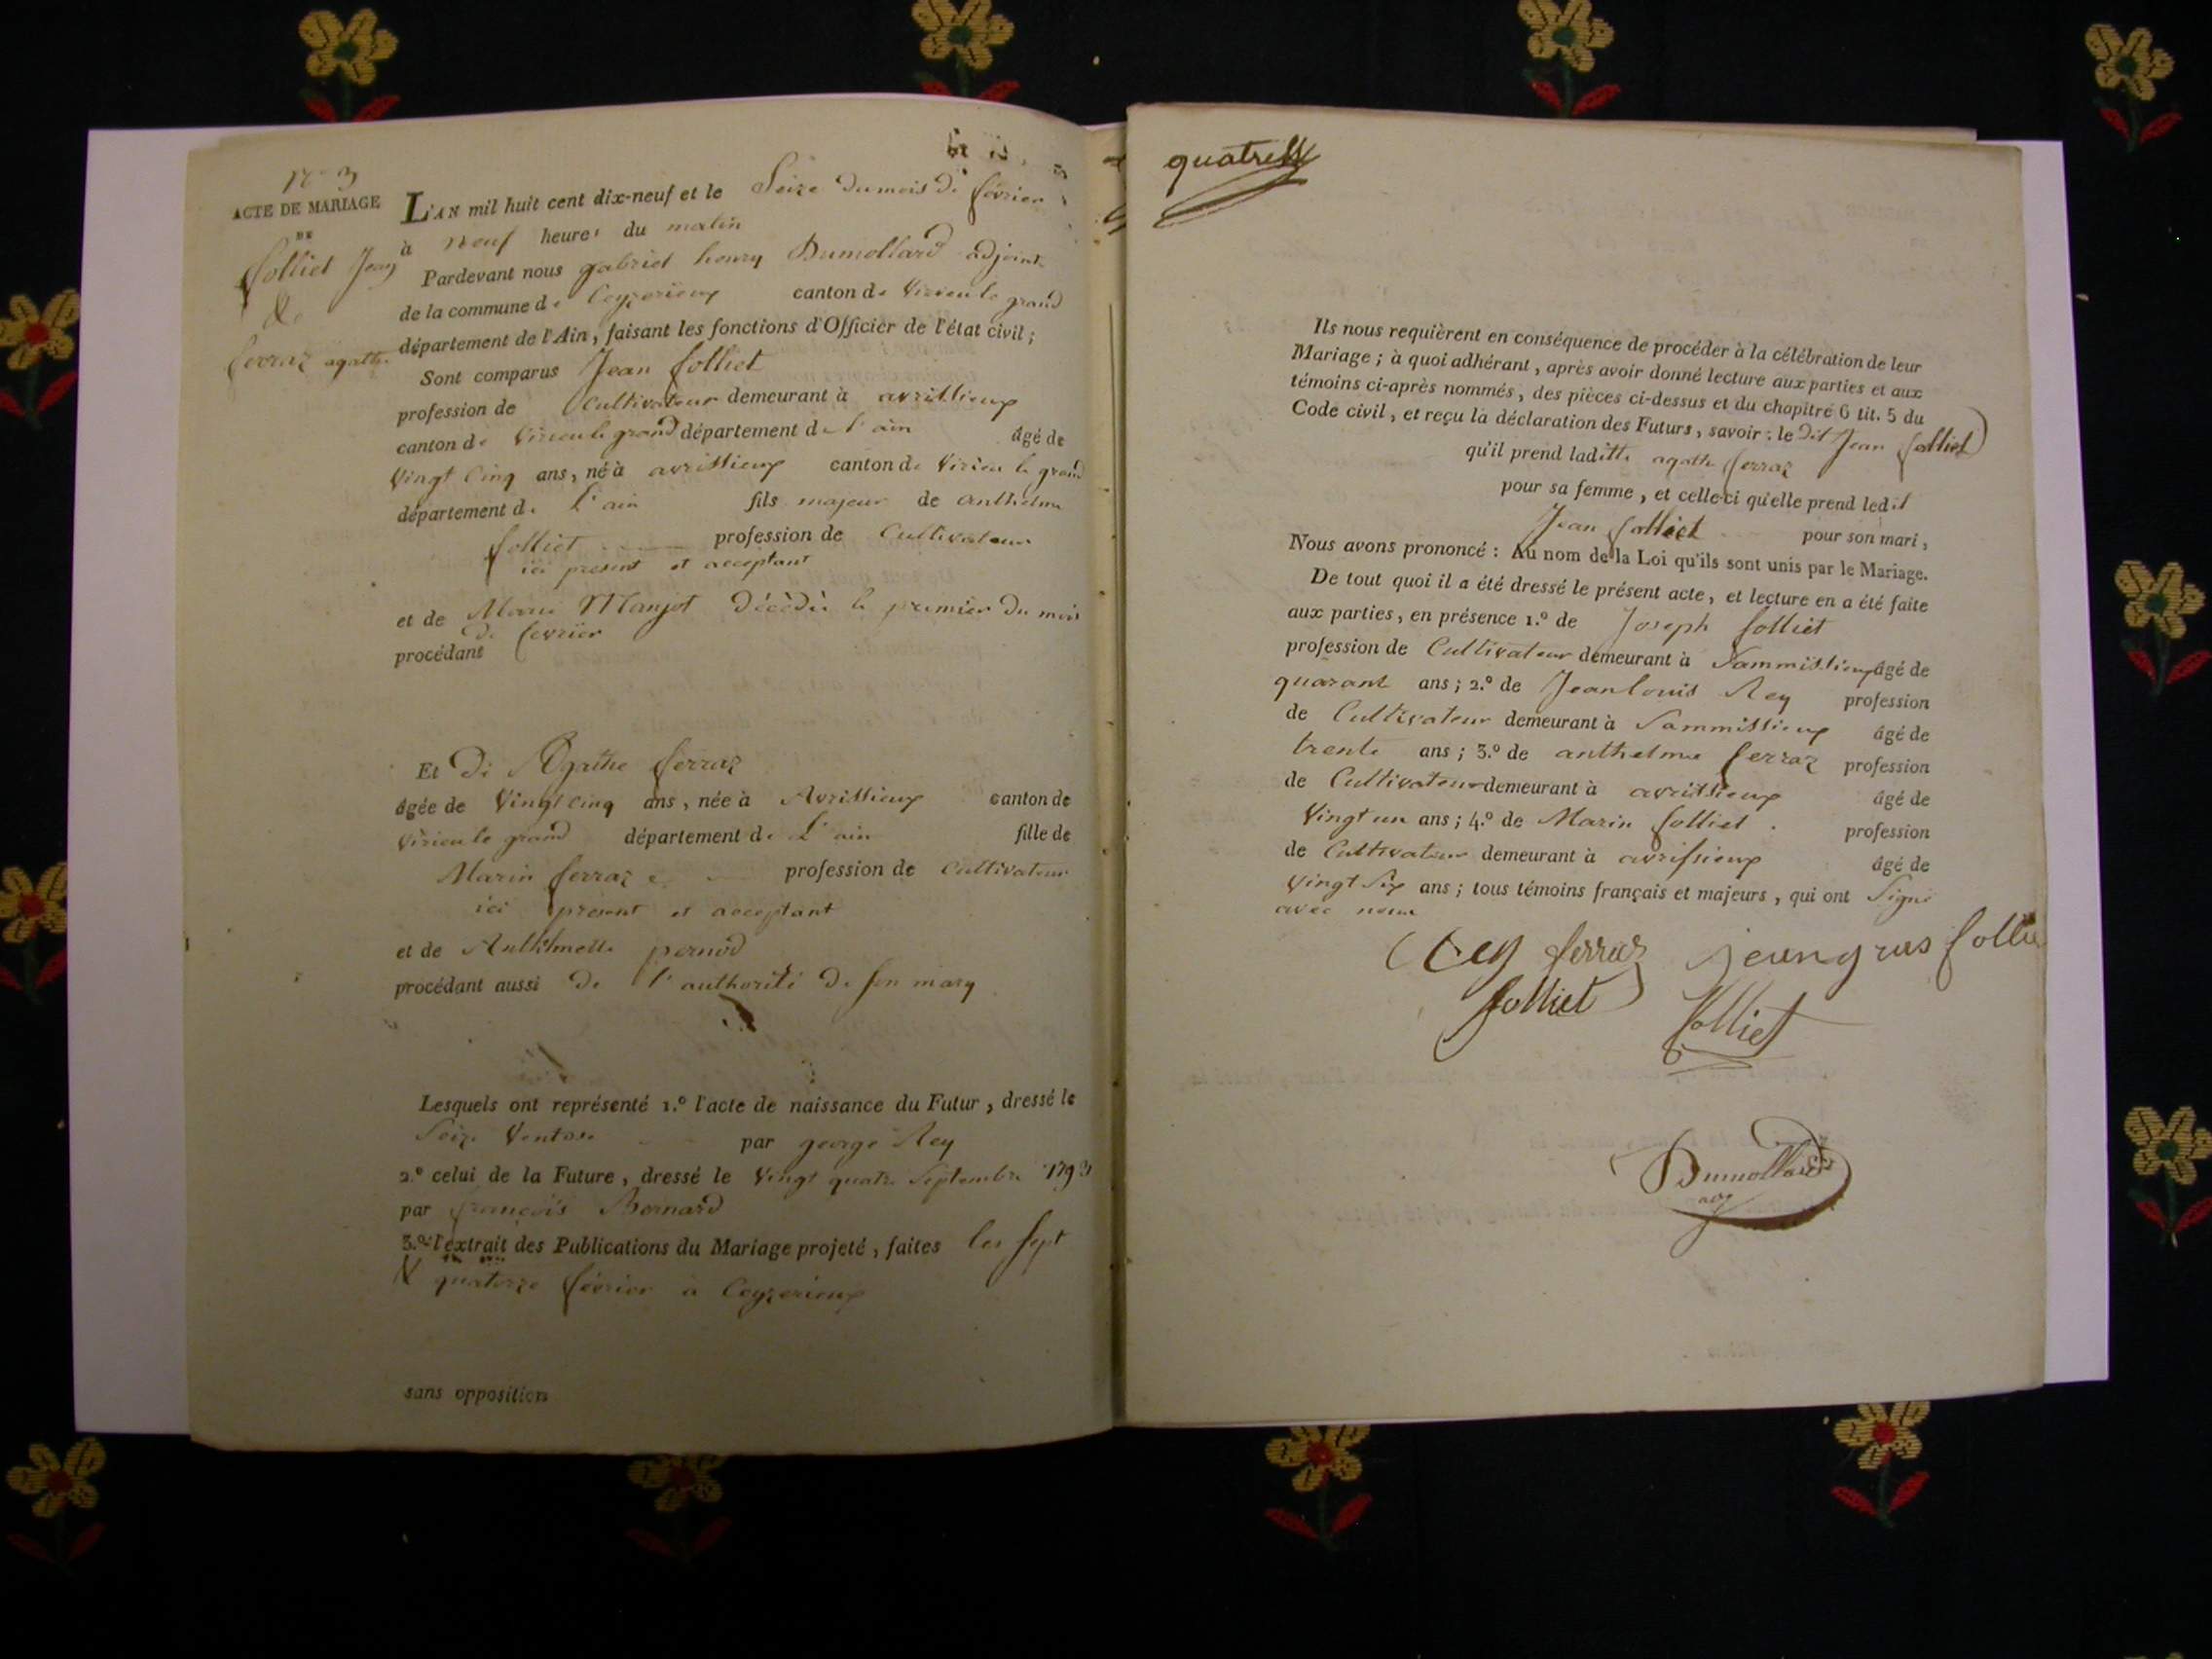 N° 3
ACTE DE MARIAGE
DE
folliet Jean
&
ferraz agathe
L'AN mil huit cent dix-neuf et le Seize du mois de février
à neuf heures du matin
Pardevant nous gabriel henry Dumollard adjoint
de la commune de Ceyzerieux canton de Virieu le grand
département de l'Ain, faisant les fonctions d'Officier de l'état civil;
Sont comparus Jean folliet
profession de Cultivateur demeurant à avrissieux
canton de Virieu le grand département de l'ain âgé de
Vingt Cinq ans, né à avrissieux canton de Virieu le grand
département de L'ain fils majeur de anthelme
folliet profession de Cultivateur
ici present et acceptant
et de Marie Manjot décédée le premier du mois
de fevrier
procédant
Et de Agathe ferraz
âgée de Vingt cinq ans, née à Avrissieux canton de
Virieu le grand département de L'ain fille de
Marin ferraz profession de Cultivateur
ici present et acceptant
et de Anthelmette pernod
procédant aussi de l'authorité de son mary
Lesquels ont représenté 1.° l'acte de naissance du Futur, dressé le
Seize Ventose par george Rey
2.° celui de la Future, dressé le Vingt quatre Septembre 1793
par françois Bernard
3.° l'extrait des Publications du Mariage projeté, faites les sept
& quatorze février à Ceyzerieux
sans opposition
quatre
Ils nous requièrent en conséquence de procéder à la célébration de leur
Mariage; à quoi adhérant, après avoir donné lecture aux parties et aux
témoins ci-après nommés, des pièces ci-dessus et du chapitre 6 tit. 5 du
Code civil, et reçu la déclaration des Futurs, savoir: le dit Jean folliet
qu'il prend laditte agathe ferraz
pour sa femme, et celle-ci qu'elle prend ledit
Jean folliet pour son mari,
Nous avons prononcé: Au nom de la Loi qu'ils sont unis par le Mariage.
De tout quoi il a été dressé le présent acte, et lecture en a été faite
aux parties, en présence 1.° de Joseph folliet
profession de Cultivateur demeurant à Sammissieux âgé de
quarant ans; 2.° de Jean louis Rey profession
de Cultivateur demeurant à Sammissieux âgé de
trente ans; 3.° de anthelme ferraz profession
de Cultivateur demeurant à avrissieux âgé de
Vingt un ans; 4.° de Marin folliet profession
de Cultivateur demeurant à avrissieux âgé de
Vingt Six ans; tous témoins français et majeurs, qui ont Signé
avec nous
Rey ferraz jeungros follie
folliet folliet
Dumollard
adj